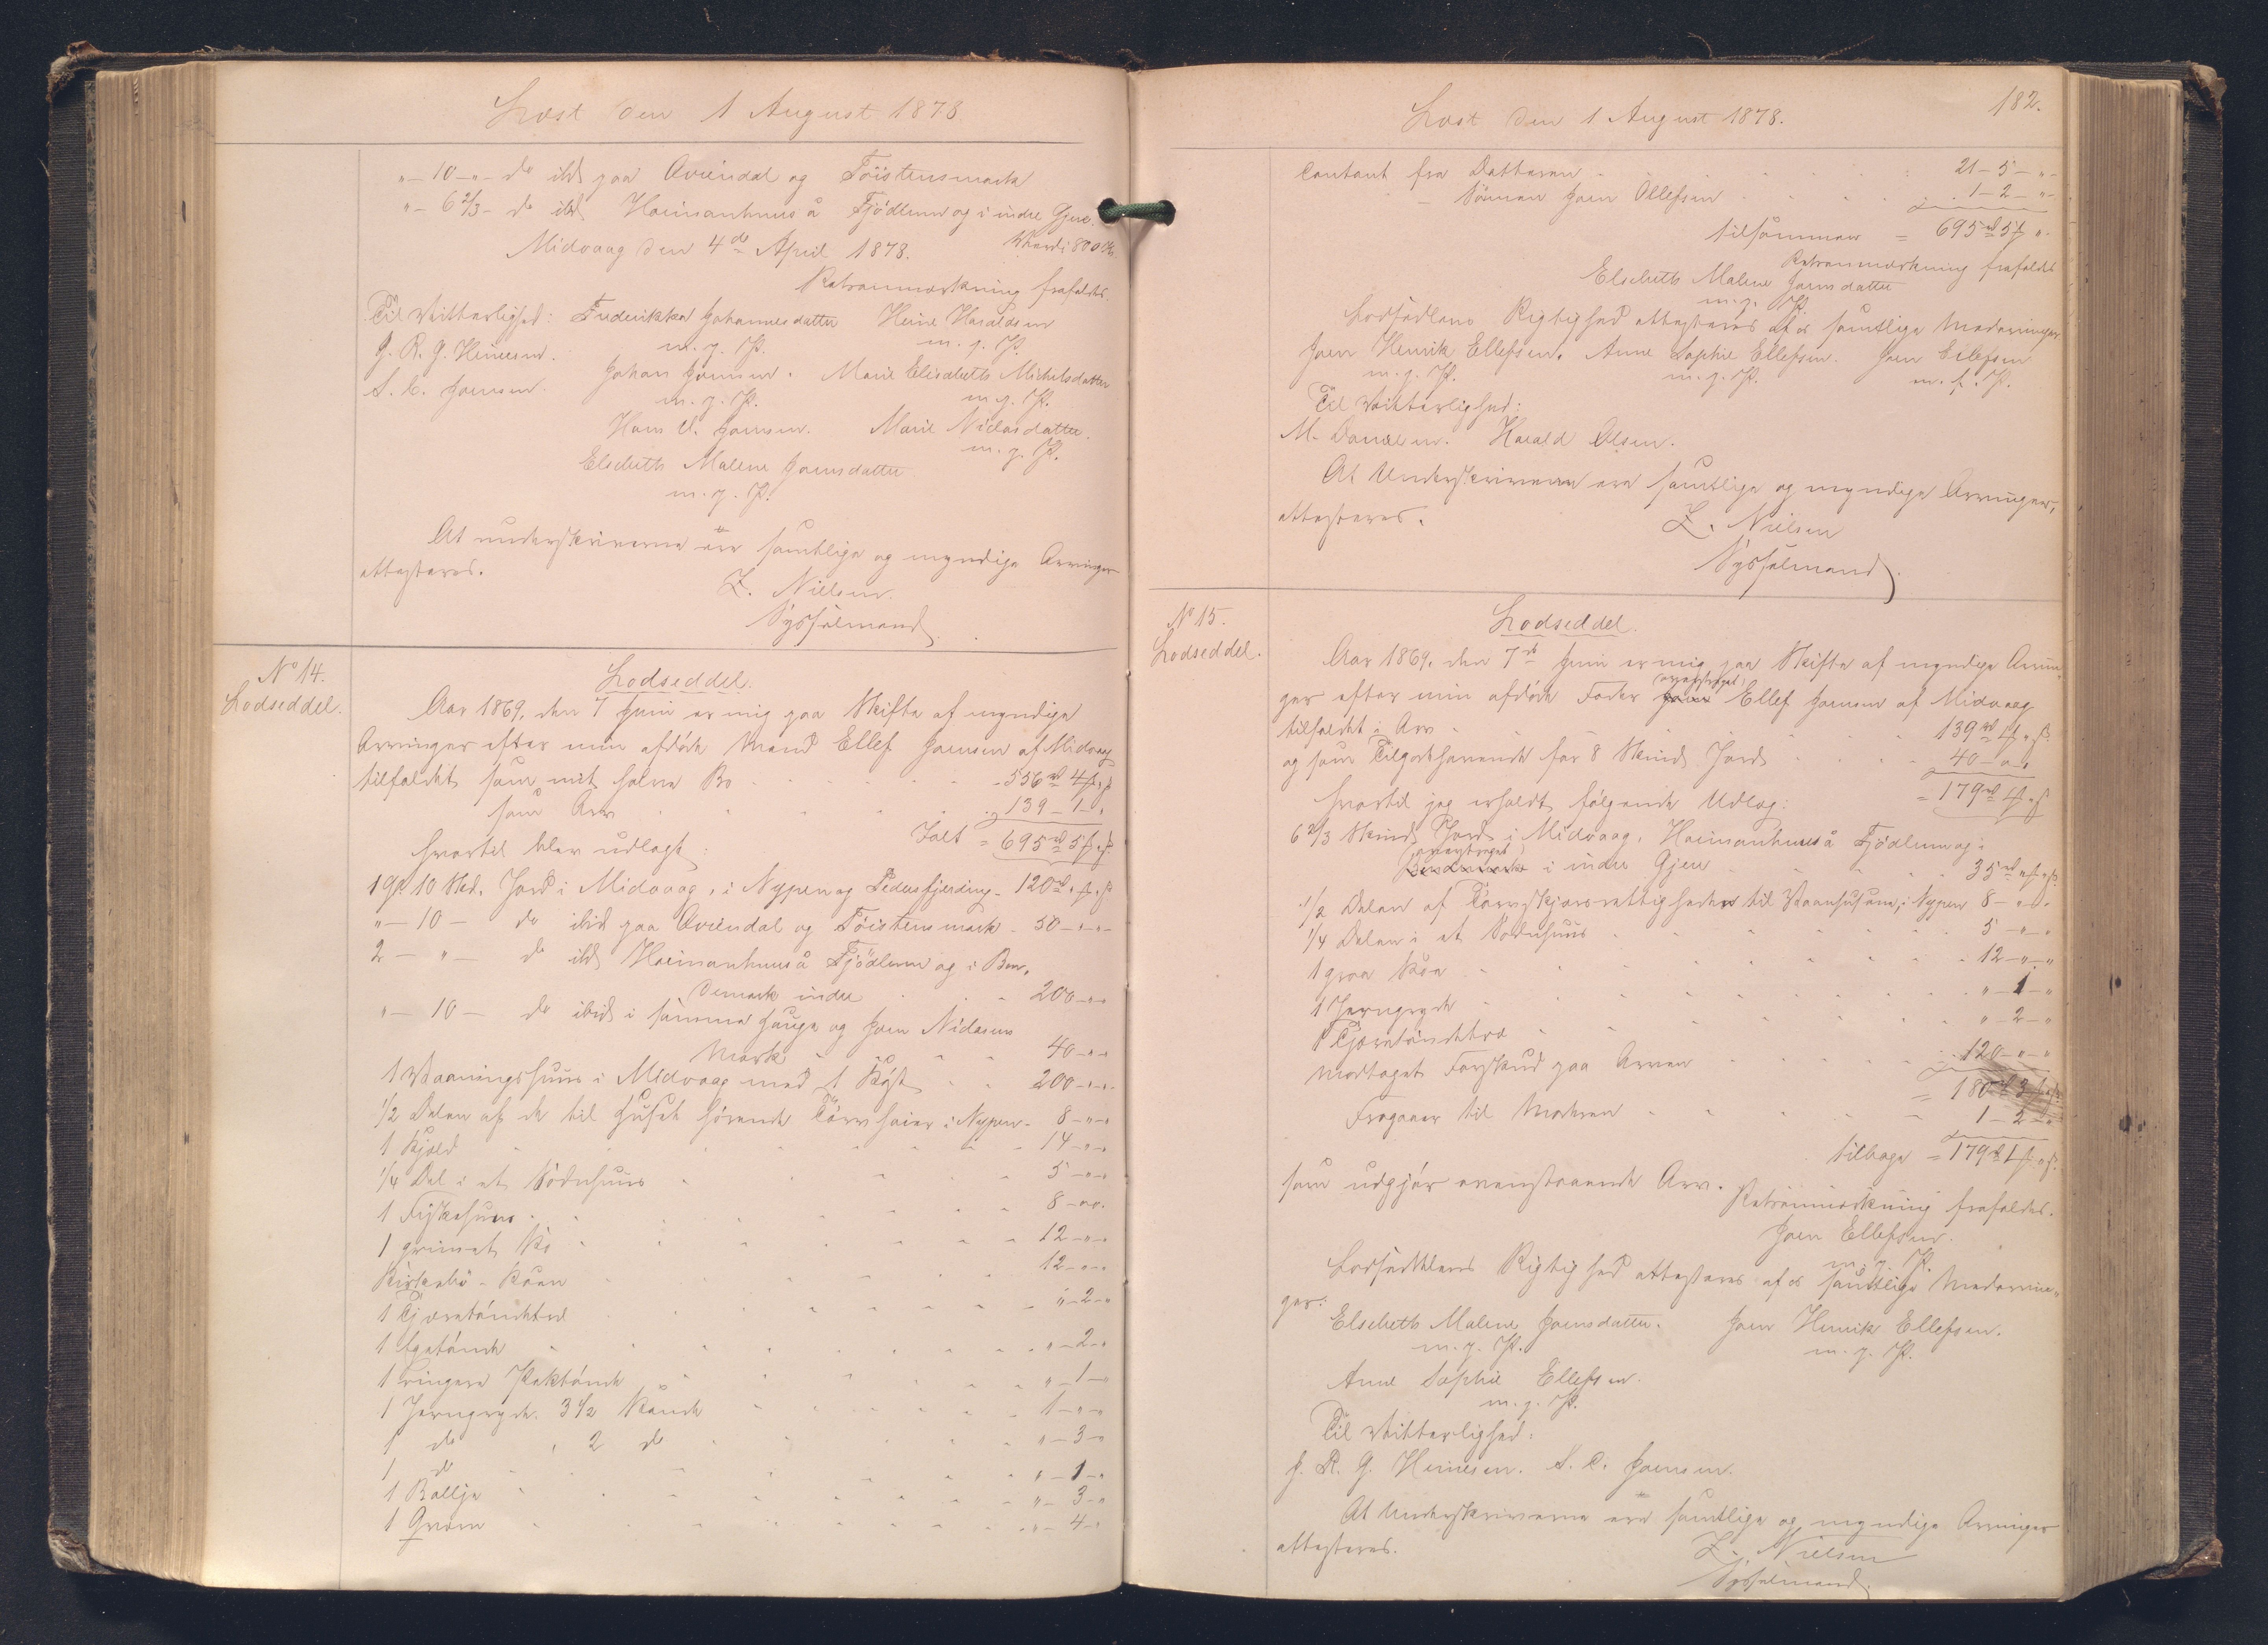 Læst den 1 August 1878.
"-10-"- do ibd paa Qviendal og Töistensmark
"- 6 2/3 - do ibd Heimanhuuså Fjödlum og i indre Gjeu.
Værdi 800 Kr.
Midvaag den 4de April 1878.
Retranmærkning frafaldes.
Til Vitterlighed: Frederikka Johannesdatter Heine Haraldsen
J. R. J. Heinesen. m. f. P. m. f. P.
S. C. Joensen. Johan Joensen. Marie Elisabeth Michelsdatter
m. f. P. m. f. P.
Hans U. Joensen. Marie Niclasdatter.
m. f. P.
Elsebeth Malene Joensdatter
m. f. P.
At underskriverne ere samtlige og myndige Arvinger
attesteres.
Z. Nielsen.
Sysselmand
No 14.
Lodseddel.
Lodseddel.
Aar 1869, den 7 Juni er mig paa Skifte af myndige
Arvinger efter min afdöde Mand Ellef Joensen af Midvaag
tilfaldet som mit halve Bo - 556 rd 4 # " ß
som Arv 139 - 1 - "
Ialt = 695 rd 5 # " ß
hvortil blev udlagt:
1 Gl. 10 Skd. Jord i Midvaag, i Nypen og Pedersfjerding - 120 rd " # " ß
"-10- do ibid paa Qviendal og Töistensmark - 50 - " - "
2 - " - do ibd Heimanhuuså Fjödlum og i Ben-
demark indre 200 - " - "
"-10- do ibid i samme Hauge og Joen Niclasens
Mark 40 - " - "
1 Vaaningshuus i Midvaag med 1 Kost 200 - " - "
1/2 Delen af de til Huset hörende Törvhaier i Nypen - 8 - " - "
1 Kjeld 14 - " - "
1/4 Del i et Södnhuus 5 - " - "
1 Fiskehuus 8 - " - "
1 grimet Ko 12 - " - "
Kirkebö-Koen 12 - " - "
1 Tjæretöndetræ " - 2 - "
1 Egetönde " - 2 - "
1 ringere Saltönde " - 1 - "
1 Jerngryde 3 1/2 Kande 1 - " - "
1 do , 2 do " - 3 - "
1 do " - 1 - "
1 Ballje " - 3 - "
1 Qværn " - 4 - "
Læst den 1 August 1878.
182.
Contant fra Datteren 21 - 5 - "
- Sönnen Joen Ellefsen 1 - 2 - "
tilsammen = 695 rd 5 # "
Retranmærkning frafaldes
Elsebeth Malene Joensdatter
m. f. P.
Lodsedlens Rigtighed attesteres af os samtlige Medarvinger
Joen Henrik Ellefsen. Anne Sophie Ellefsen. Joen Ellefsen
m. f. P. m. f. P. m. f. P.
Til Vitterlighed:
M. Danielsen. Harald Olsen.
At Underskriverne ere samtlige og myndige Arvinger,
attesteres.
Z. Nielsen
Sysselmand
No 15.
Lodseddel.
Lodseddel.
Aar 1869, den 7de Juni er mig paa Skifte af myndige Arvin-
(overstreget)
ger efter min afdöde Fader Joen Ellef Joensen af Midvaag
tilfaldet i Arv 139 rd 1 # " ß
og som Tilgodehavende for 8 Skind Jord 40 - " - "
= 179 rd 1 # " ß
hvortil jeg erholdt fölgende Udlæg:
6 2/3 Skind Jord i Midvaag, Heimanhuuså Fjödlum og i
(overstreget)
Bendemark i indre Gjeu 35 rd " # " ß
1/2 Delen af Törveskjærsrettigheden til Vaanhusene, i Nypen 8 - " - "
1/4 Delen i et Södnhuus 5 - " - "
1 graa Koe 12 - " - "
1 Jerngryde " - 1 - "
1 Tjæretöndetræ " - 2 - "
modtaget Forskud paa Arven 120 - " - "
= 180 rd 3 # " ß
Fragaaer til Moderen 1 - 2 - "
tilbage = 179 rd 1 # " ß
som udgjör ovenstaaende Arv.
Retranmærkning frafaldes.
Joen Ellefsen.
m. f. P.
Lodseddelens Rigtighed attesteres af os samtlige Medarvin-
ger:
Elsebeth Malene Joensdatter. Joen Henrik Ellefsen.
m. f. P. m. f. P.
Anne Sophie Ellefsen.
m. f. P.
Til Vitterlighed:
J. R. J. Heinesen. S. C. Joensen.
At Underskriverne ere samtlige og myndige Arvinger
attesteres.
Z. Nielsen
Sysselmand.